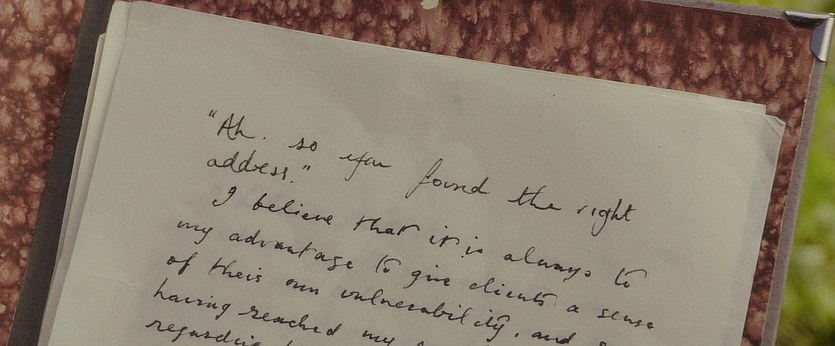 "Ah. so you found the right
address."
I believe that it is always to
my advantage to give clients a sense
of their own vulnerability, and
having reached my
regarding